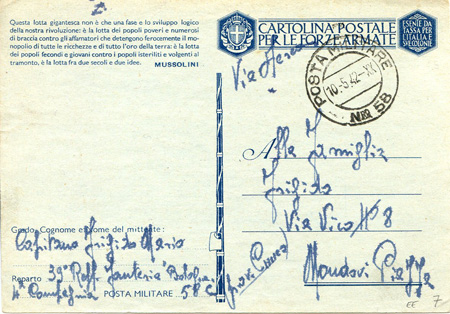 Questa lotta gigantesca non è che una fase e lo sviluppo logico
della nostra rivoluzione: è la lotta dei popoli poveri e numerosi
di braccia contro gli affamatori che detengono ferocemente il mo-
nopolio di tutte le ricchezze e di tutto l'oro della terra: è la lotta
dei popoli fecondi e giovani contro i popoli isteriliti e volgenti al
tramonto, è la lotta fra due secoli e due idee.
MUSSOLINI
CARTOLINA POSTALE
PER LE FORZE ARMATE
ESENTE DA
TASSA PER
L'ITALIA E
SUE COLONIE
Via Aerea
POSTA MILITARE
10-5-42-XX
N° 58
Alla Famiglia
Frigido
Via Vico N° 8
Mondovì Piazza
Grado, Cognome e Nome del mittente:
Capitano Frigido Mario
Reparto 39° Regg. Fanteria Bologna
4ª Compagnia POSTA MILITARE 58
(prov. Cuneo)
EE 7